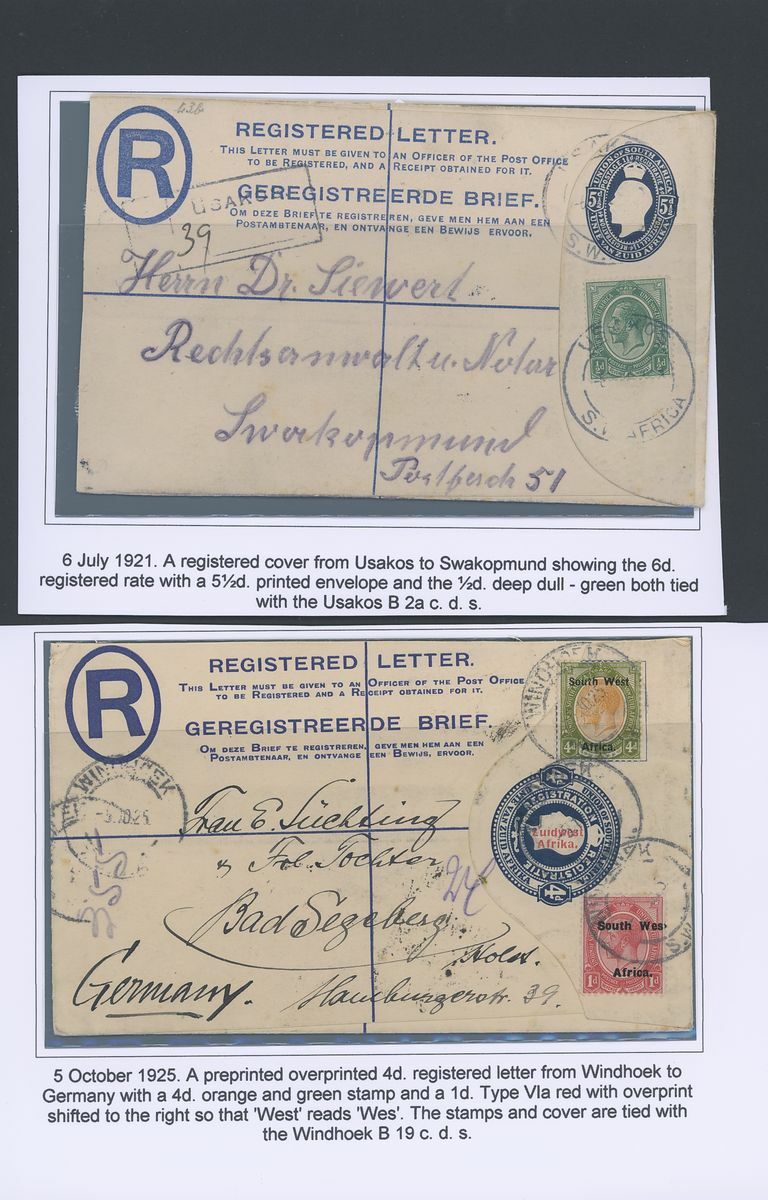 R
REGISTERED LETTER.
THIS LETTER MUST BE GIVEN TO AN OFFICER OF THE POST OFFICE
TO BE REGISTERED, AND A RECEIPT OBTAINED FOR IT.
GEREGISTREERDE BRIEF.
OM DEZE BRIEF TE REGISTREREN, GEVE MEN HEM AAN EEN
POSTAMBTENAAR, EN ONTVANGE EEN BEWIJS ERVOOR.
USAKOS
39
UNION OF SOUTH AFRICA
5½d 5½d
ZUID AFRIKA
½d ½d
S.W. AFRICA
Herrn Dr. Siewert
Rechtsanwalt u. Notar
Swakopmund
Postfach 51
6 July 1921. A registered cover from Usakos to Swakopmund showing the 6d.
registered rate with a 5½d. printed envelope and the ½d. deep dull - green both tied
with the Usakos B 2a c. d. s.
R
REGISTERED LETTER.
THIS LETTER MUST BE GIVEN TO AN OFFICER OF THE POST OFFICE
TO BE REGISTERED AND A RECEIPT OBTAINED FOR IT.
GEREGISTREERDE BRIEF.
OM DEZE BRIEF TE REGISTREREN, GEVE MEN HEM AAN EEN
POSTAMBTENAAR, EN ONTVANGE EEN BEWIJS, ERVOOR.
WINDHOEK
South West
Africa.
4d 4d
REGISTRATION
Zuidwest
Afrika.
REGISTRATIE
4d
South Wes
Africa.
1d 1d
WINDHOEK
Frau E. Tüchting
u. Frl. Tochter
Bad Segeberg
Holst.
Germany. Hamburgerstr. 39.
24
5 October 1925. A preprinted overprinted 4d. registered letter from Windhoek to
Germany with a 4d. orange and green stamp and a 1d. Type VIa red with overprint
shifted to the right so that 'West' reads 'Wes'. The stamps and cover are tied with
the Windhoek B 19 c. d. s.